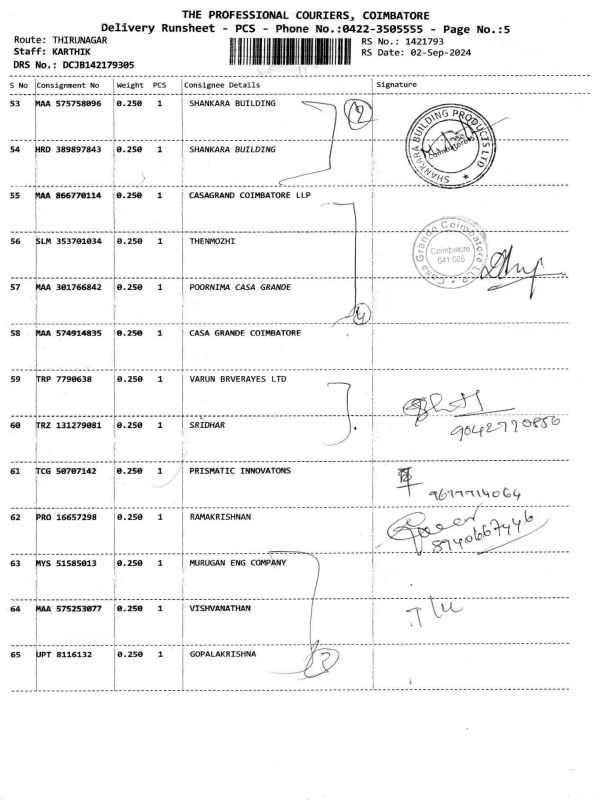 THE PROFESSIONAL COURIERS, COIMBATORE
Delivery Runsheet - PCS - Phone No.:0422-3505555 - Page No.:5
Route: THIRUNAGAR RS No.: 1421793
Staff: KARTHIK RS Date: 02-Sep-2024
DRS No.: DCJB142179305
S No Consignment No Weight PCS Consignee Details Signature
53 MAA 575758096 0.250 1 SHANKARA BUILDING
2
SHANKARA BUILDING PRODUCTS LTD
Coimbatore
54 HRD 389897843 0.250 1 SHANKARA BUILDING
55 MAA 866770114 0.250 1 CASAGRAND COIMBATORE LLP
Casa Grande Coimbatore LLP
Coimbatore
641 005
56 SLM 353701034 0.250 1 THENMOZHI
57 MAA 301766842 0.250 1 POORNIMA CASA GRANDE
4
58 MAA 574914835 0.250 1 CASA GRANDE COIMBATORE
59 TRP 7790638 0.250 1 VARUN BRVERAYES LTD
60 TRZ 131279081 0.250 1 SRIDHAR
9042770856
61 TCG 50707142 0.250 1 PRISMATIC INNOVATONS
9677714064
62 PRO 16657298 0.250 1 RAMAKRISHNAN
8940667446
63 MYS 51585013 0.250 1 MURUGAN ENG COMPANY
64 MAA 575253077 0.250 1 VISHVANATHAN
65 UPT 8116132 0.250 1 GOPALAKRISHNA